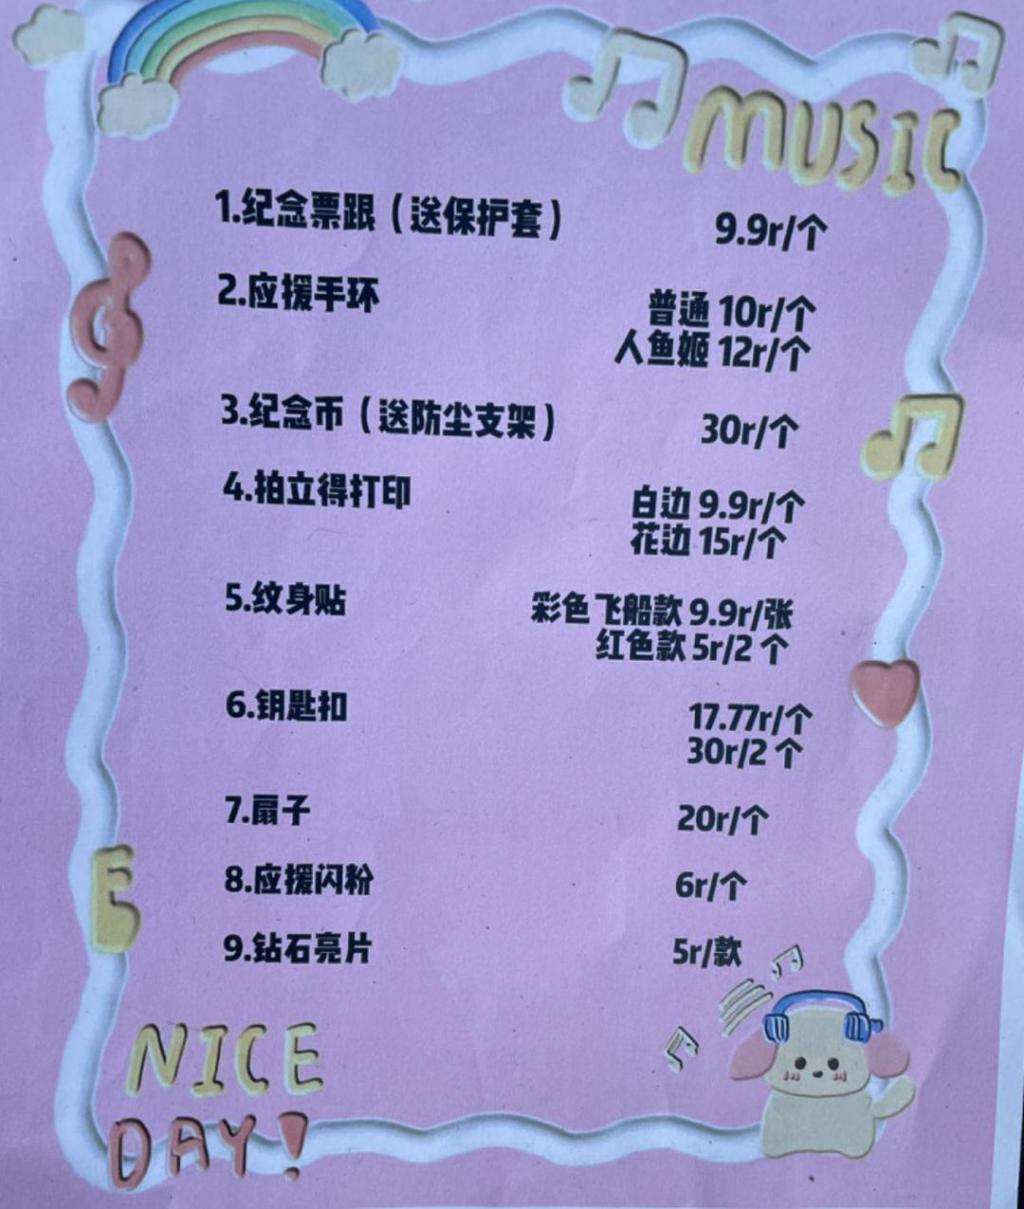 MUSIC
1.纪念票跟（送保护套） 9.9r/个
2.应援手环 普通 10r/个
人鱼姬 12r/个
3.纪念币（送防尘支架） 30r/个
4.拍立得打印 白边 9.9r/个
花边 15r/个
5.纹身贴 彩色飞船款 9.9r/张
红色款 5r/2 个
6.钥匙扣 17.77r/个
30r/2 个
7.扇子 20r/个
8.应援闪粉 6r/个
9.钻石亮片 5r/款
E
NICE
DAY!